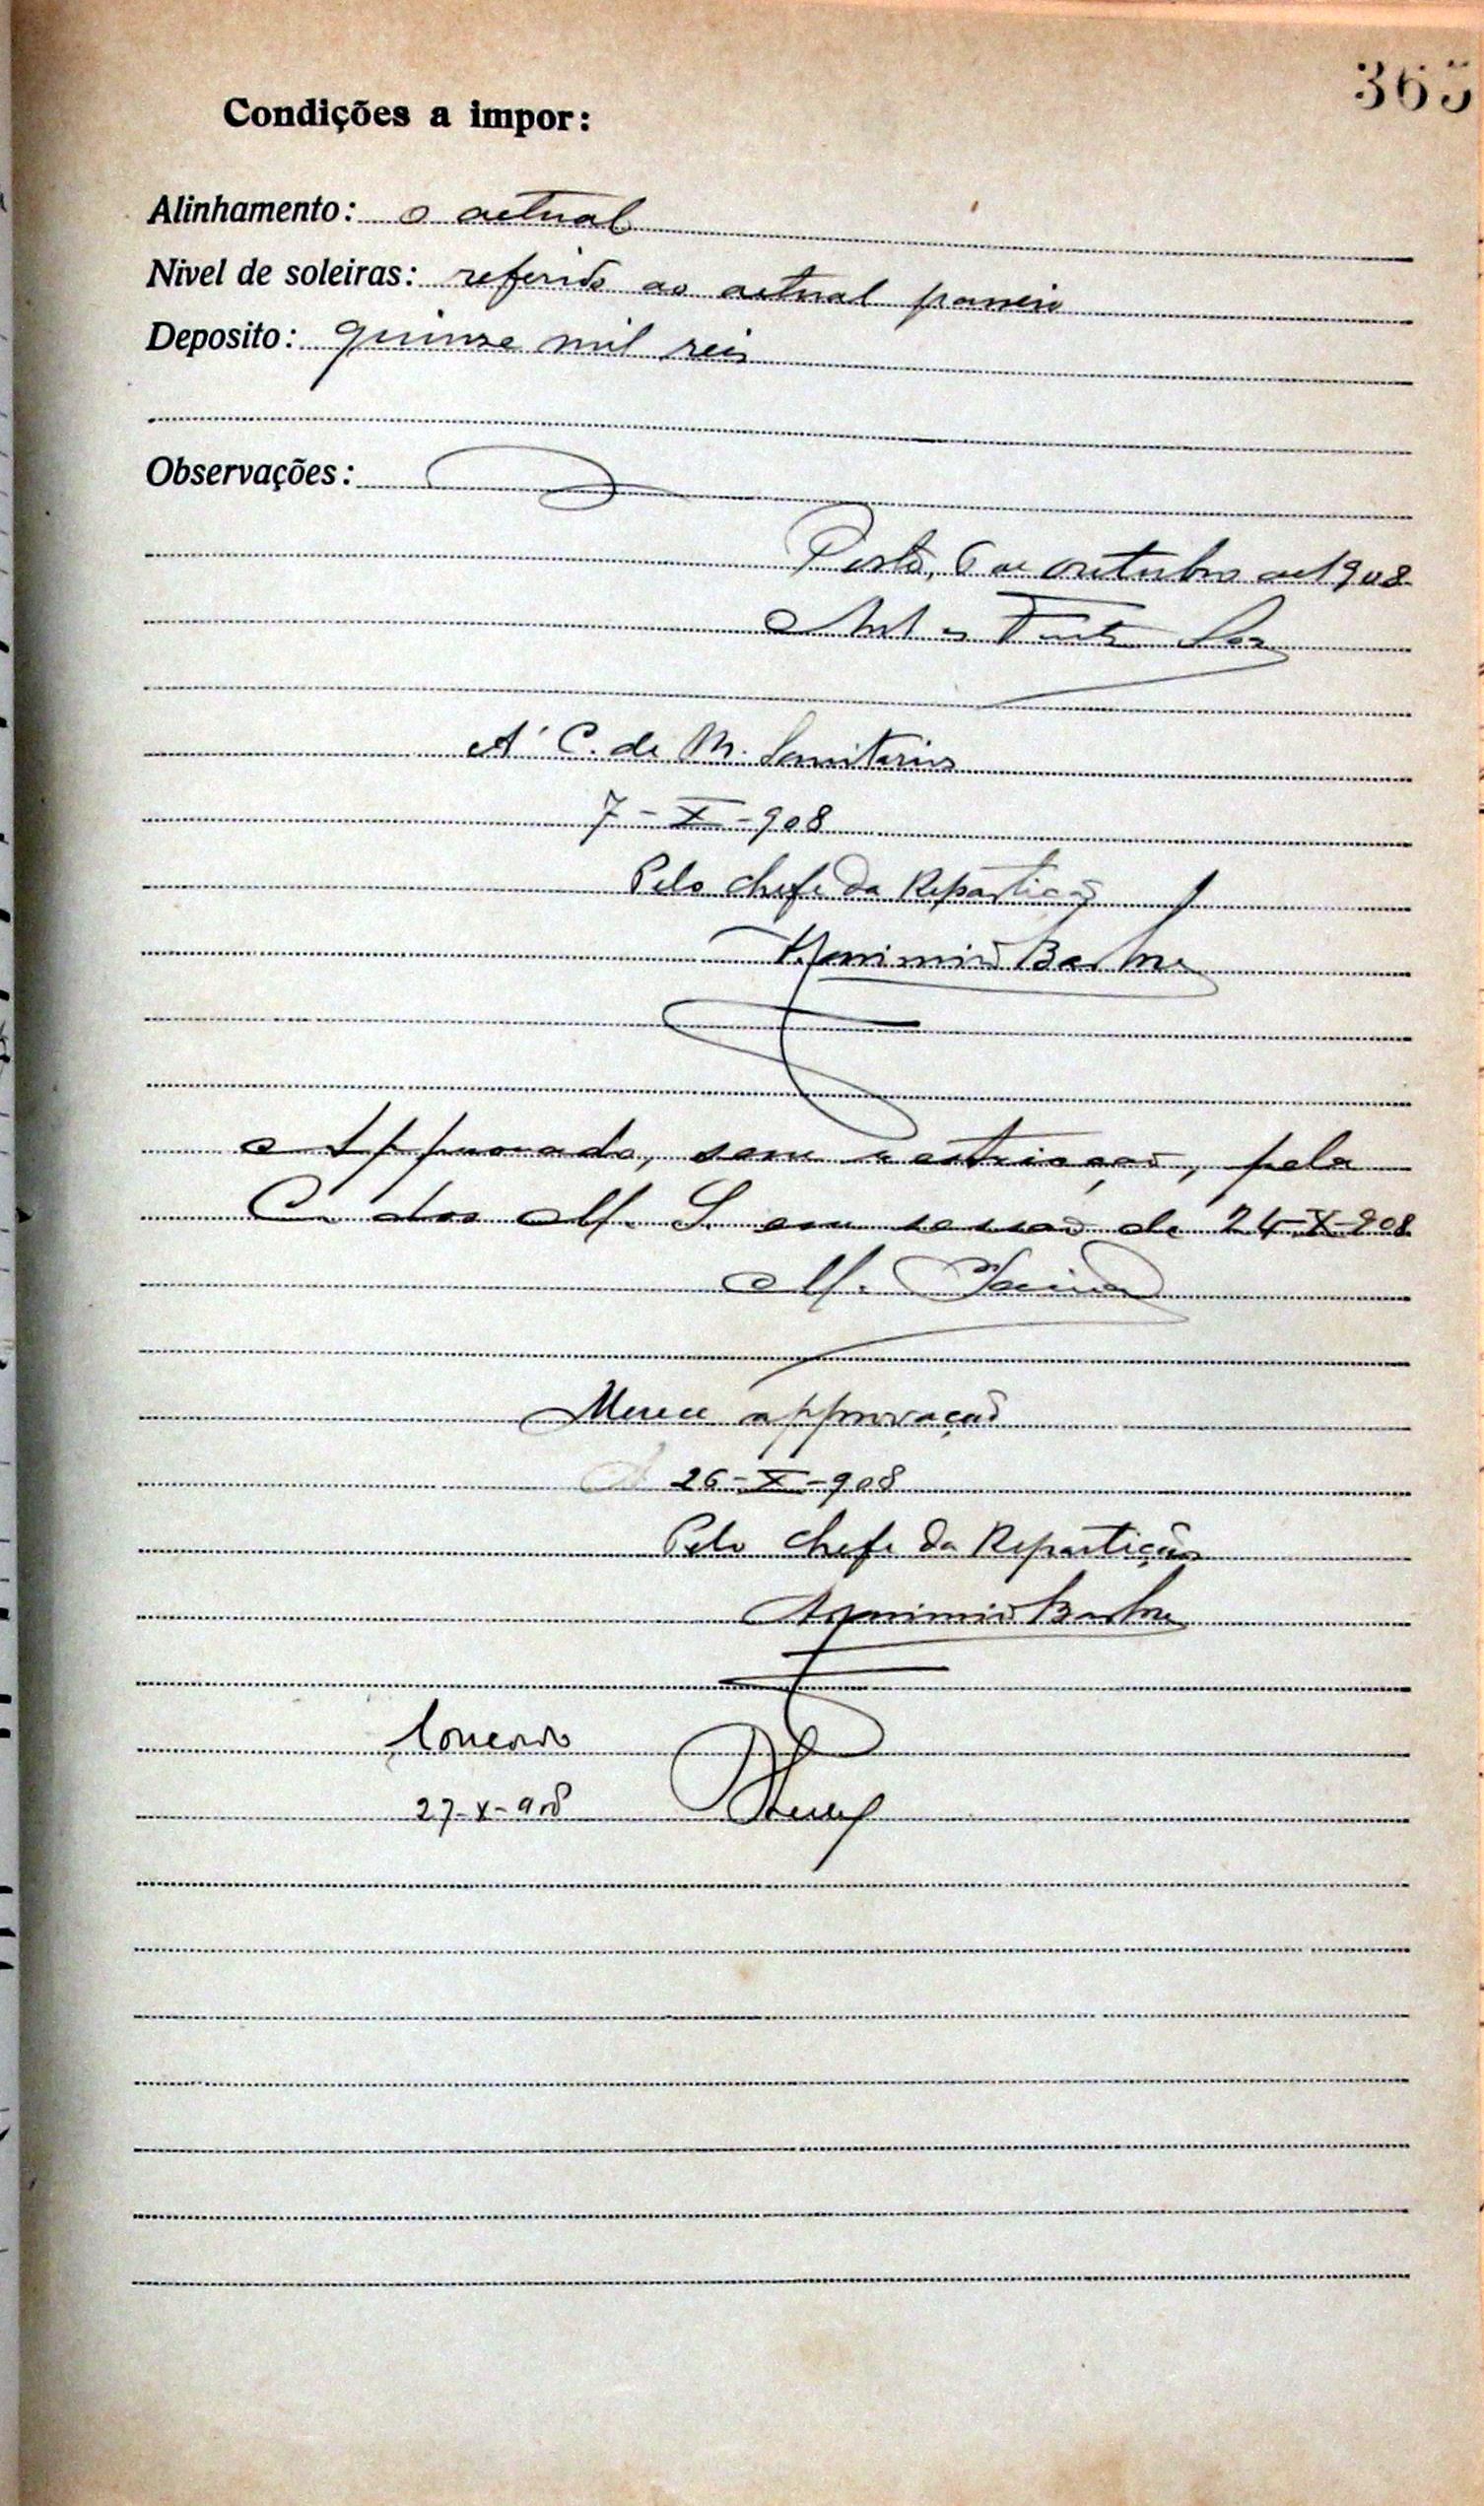 365
Condições a impor:
Alinhamento: o actual
Nivel de soleiras: referido ao actual passeio
Deposito: quinze mil reis
Observações:
Porto, 6 de outubro de 1908
Á C. de M. Sanitarios
7-X-908
Pelo chefe da Repartição
Barbosa
Approvado, sem restricções, pela
C. dos M. S. em sessão de 24-X-908
M.
Merece approvação
26-X-908
Pelo chefe da Repartição
Barbosa
Concordo
27-X-908